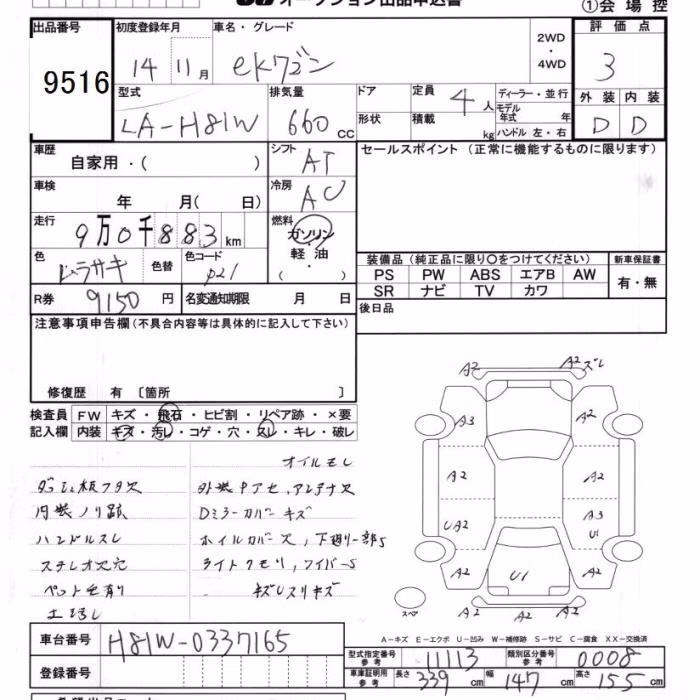 オークション出品申込書
①会場控
出品番号
9516
初度登録年月
14 11月
車名・グレード
ekワゴン
2WD
・
4WD
評価点
3
型式
LA-H81W
排気量
660 cc
ドア
形状
定員
4人
積載
kg
ディーラー・並行
モデル年式 年
ハンドル 左・右
外装 内装
D D
車歴
自家用・( )
シフト
AT
セールスポイント (正常に機能するものに限ります)
車検
年 月( 日)
冷房
AC
走行
9万0千883km
燃料
ガソリン
・
軽油
・
( )
色
ムラサキ
色替
色コード
P21
装備品 (純正品に限り○をつけてください)
新車保証書
PS PW ABS エアB AW
有・無
SR ナビ TV カワ
R券
9150円
名変通知期限 月 日
後日品
注意事項申告欄(不具合内容等は具体的に記入して下さい)
修復歴 有〔箇所 〕
検査員
記入欄
FW キズ・飛石・ヒビ割・リペア跡・×要
内装 キズ・汚レ・コゲ・穴・スレ・キレ・破レ
オイルモレ
ダッシュ板フタ欠
外装中アセ、アンテナ欠
内装ノリ跡
Dミラーカバーキズ
ハンドルスレ
ホイルカバー欠,下廻り一部S
ステレオ欠穴
ライトクモリ,ワイパーS
ペット毛有り
キズUスリキズ
A2
A2 ズレ
A3
A2
A2
A2
UA2
A3
U1
A2
U1
A2
スペ
A-キズ E-エクボ U-凹み W-補修跡 S-サビ C-腐食 XX-交換済
車台番号
H81W-0337165
型式指定番号
参考
11113
類別区分番号
参考
0008
登録番号
車庫証明用
参考
長さ 339cm
幅 147cm
高さ 155cm